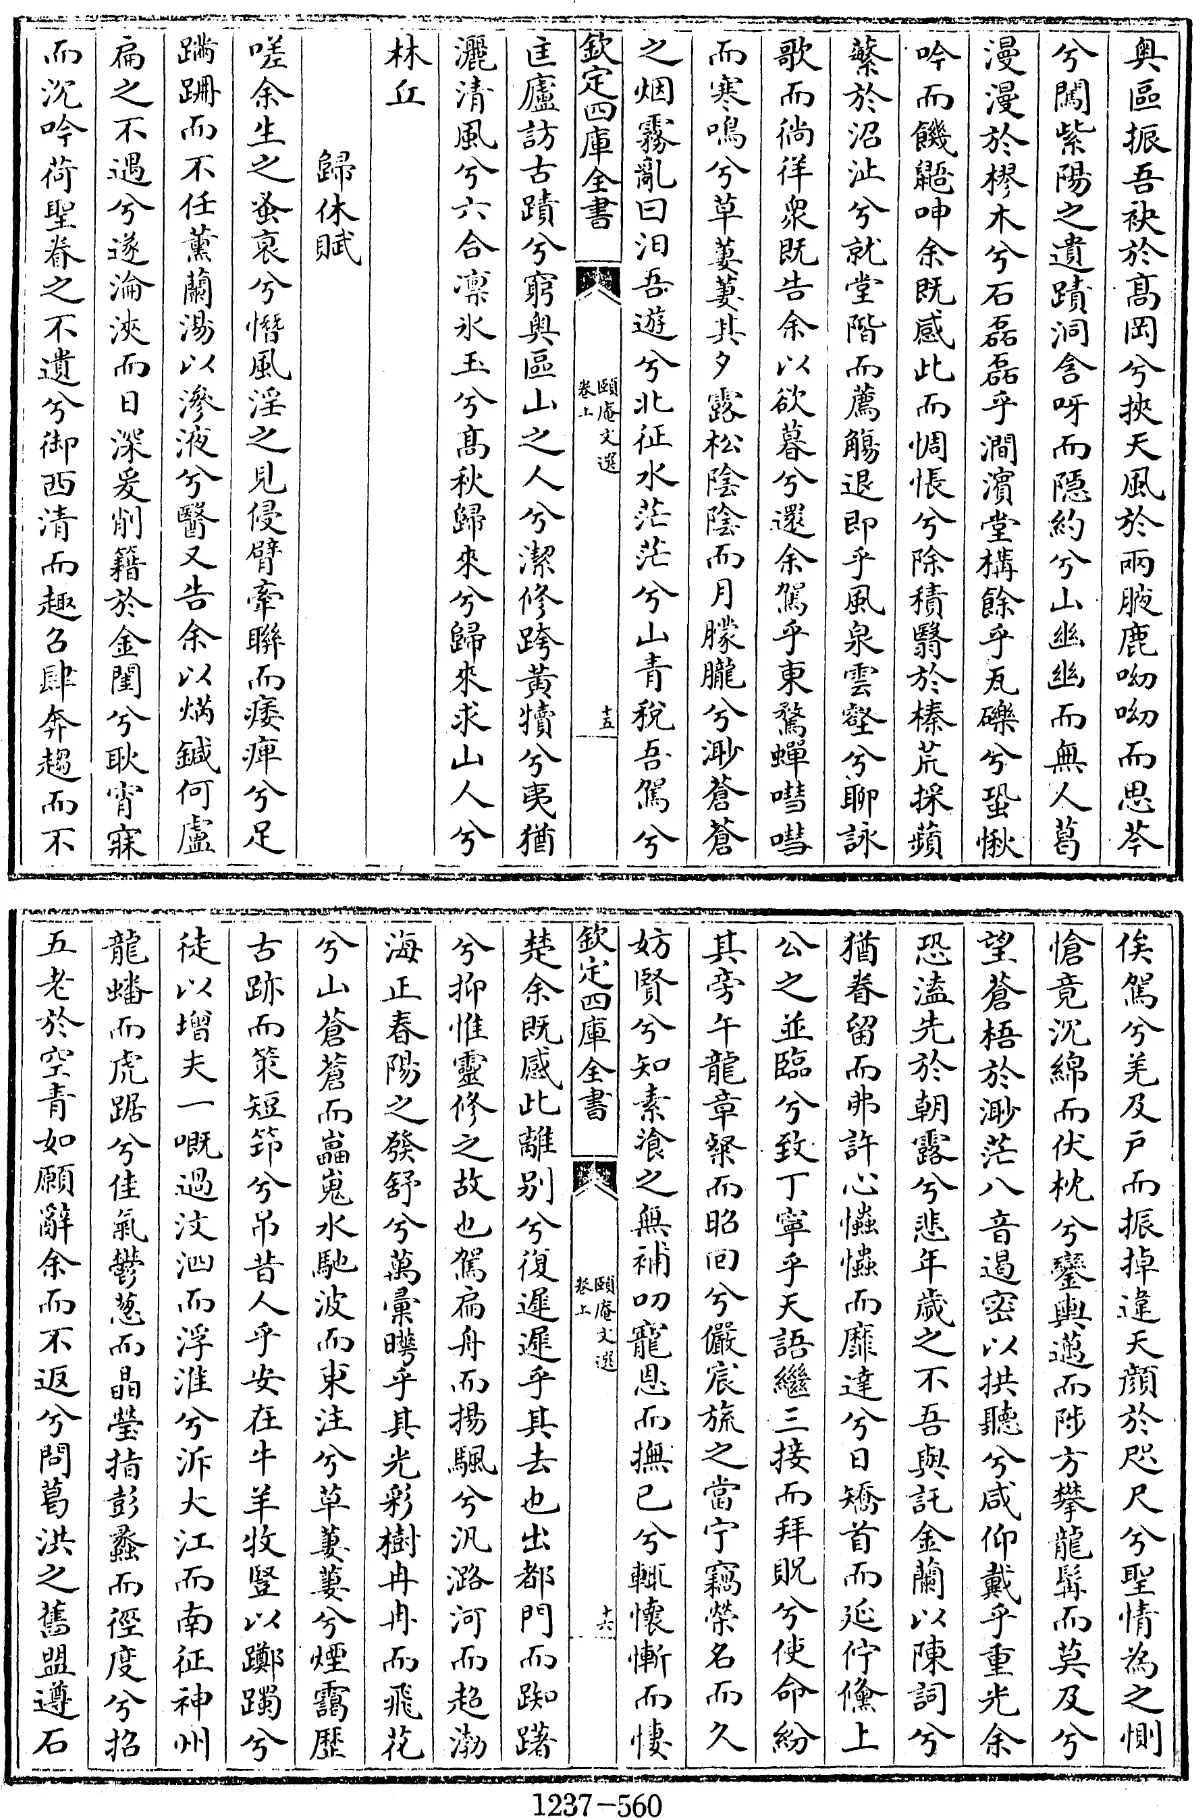 奥區振吾袂於髙岡兮挾天風於兩腋鹿呦呦而思芩
兮闖紫陽之遺蹟洞含呀而隱約兮山幽幽而無人葛
漫漫於樛木兮石磊磊乎澗濱堂構餘乎瓦礫兮蛩愀
吟而饑鼯呻余既感此而惆悵兮除積翳於榛荒採蘋
蘩於沼沚兮就堂階而薦觴退即乎風泉雲壑兮聊詠
歌而徜徉衆既告余以欲暮兮還余駕乎東騖蟬嘒嘒
而寒鳴兮草萋萋其夕露松陰陰而月朦朧兮渺蒼蒼
之烟霧亂曰汨吾遊兮北征水茫茫兮山青稅吾駕兮
欽定四庫全書 頤庵文選 卷上 十五
匡廬訪古蹟兮窮奥區山之人兮潔修跨黄犢兮夷猶
灑清風兮六合凛氷玉兮髙秋歸來兮歸來求山人兮
林丘
歸休賦
嗟余生之蚤衰兮憯風淫之見侵臂牽聯而痿痺兮足
蹣跚而不任薰蘭湯以滲液兮醫又告余以焫鍼何盧
扁之不遇兮遂淪浹而日深爰削籍於金閨兮耿宵寐
而沉吟荷聖眷之不遺兮御西清而趣召肆奔趨而不
俟駕兮羌及戸而振掉違天顔於咫尺兮聖情為之惻
愴竟沉綿而伏枕兮鑾輿邁而陟方攀龍髯而莫及兮
望蒼梧於渺茫八音遏密以拱聽兮咸仰戴乎重光余
恐溘先於朝露兮悲年歲之不吾與託金蘭以陳詞兮
猶眷留而弗許心㤝㤝而靡達兮日矯首而延佇儵上
公之並臨兮致丁寧乎天語繼三接而拜貺兮使命紛
其旁午龍章粲而昭回兮儼宸旒之當宁竊榮名而久
妨賢兮知素飡之無補叨寵恩而撫已兮輒懷慚而悽
欽定四庫全書 頤庵文選 卷上 十六
楚余既感此離别兮復遲遲乎其去也出都門而踟躇
兮抑惟靈修之故也駕扁舟而揚颿兮汎潞河而超渤
海正春陽之發舒兮萬彚曄乎其光彩樹冉冉而飛花
兮山蒼蒼而崷嵬水馳波而東注兮草萋萋兮煙靄歴
古跡而策短笻兮吊昔人乎安在牛羊牧豎以躑躅兮
徒以增夫一嘅過汶泗而浮淮兮泝大江而南征神州
龍蟠而虎踞兮佳氣鬱葱而晶瑩指彭蠡而徑度兮招
五老於空青如願辭余而不返兮問葛洪之舊盟遵石
1237-560